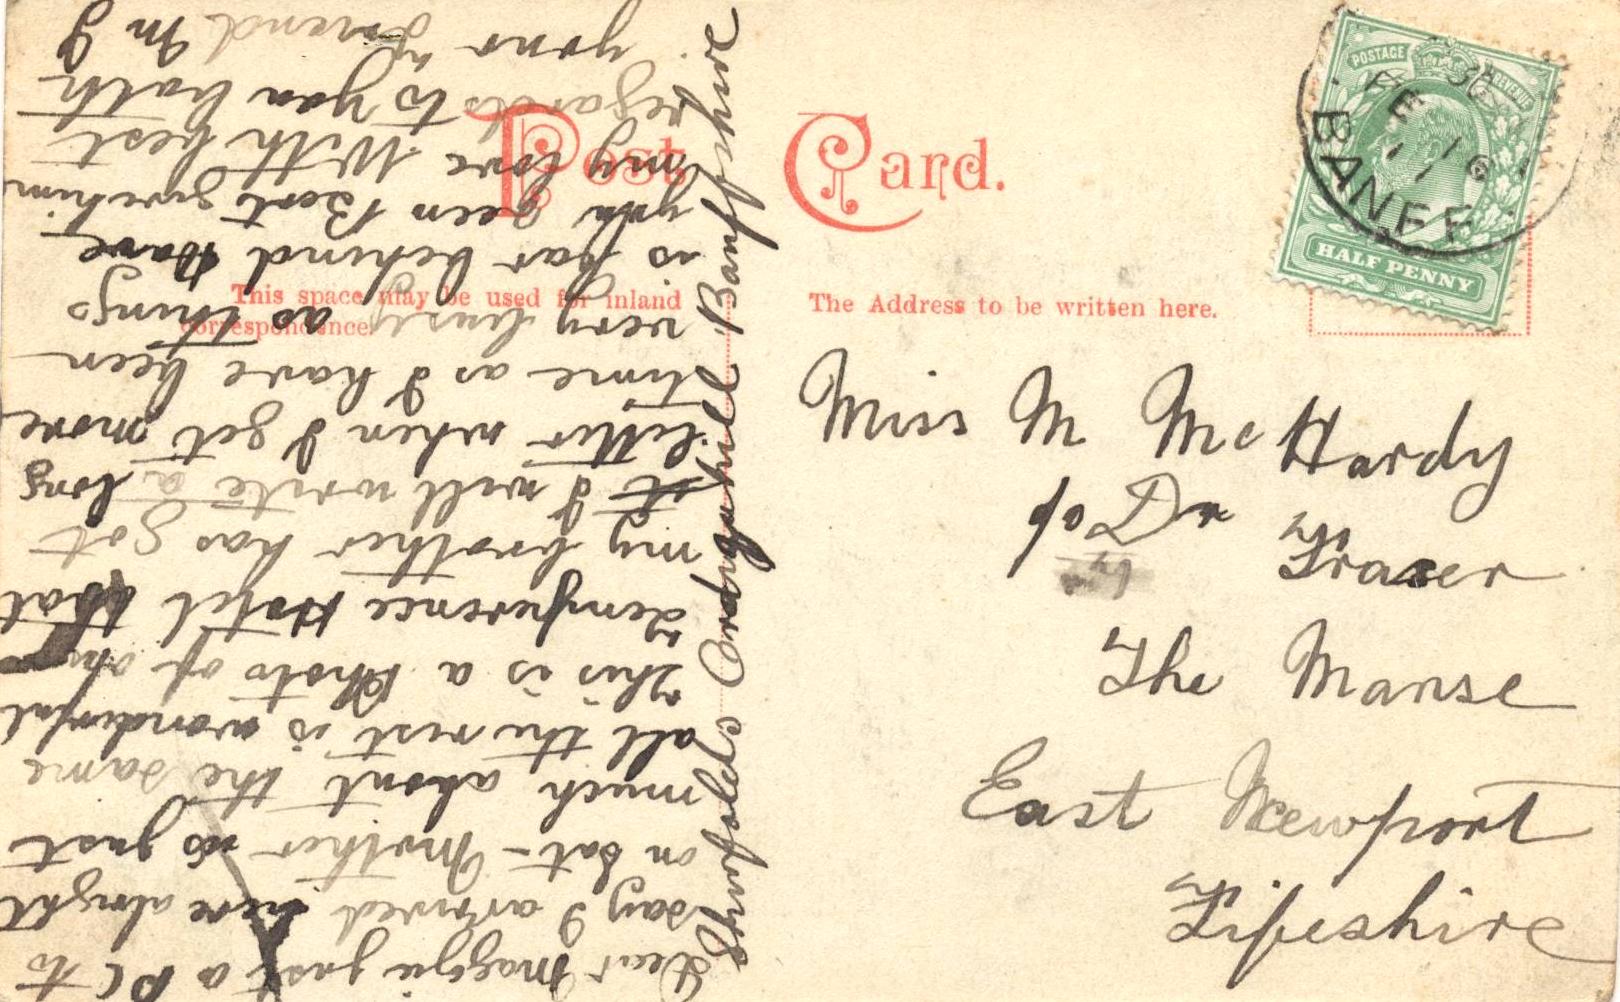 Post Card.
This space may be used for inland
correspondence.
The Address to be written here.
POSTAGE REVENUE
HALF PENNY
BANFF
FE 16
11
Miss M McHardy
c/o Dr Fraser
The Manse
East Newport
Fifeshire
Dear Maggie just a PC to
say I arrived here alright
on Sat - Mother is just
much about the same
all the rest is wonderful
This is a Photo of our
Temperence Hotel that
my brother has got
I will write a long
letter when I get more
time as I have been
very busy as things
is far behind Have
you seen Bert give him
my love With best
regards to you both
your friend M G
Banffshire